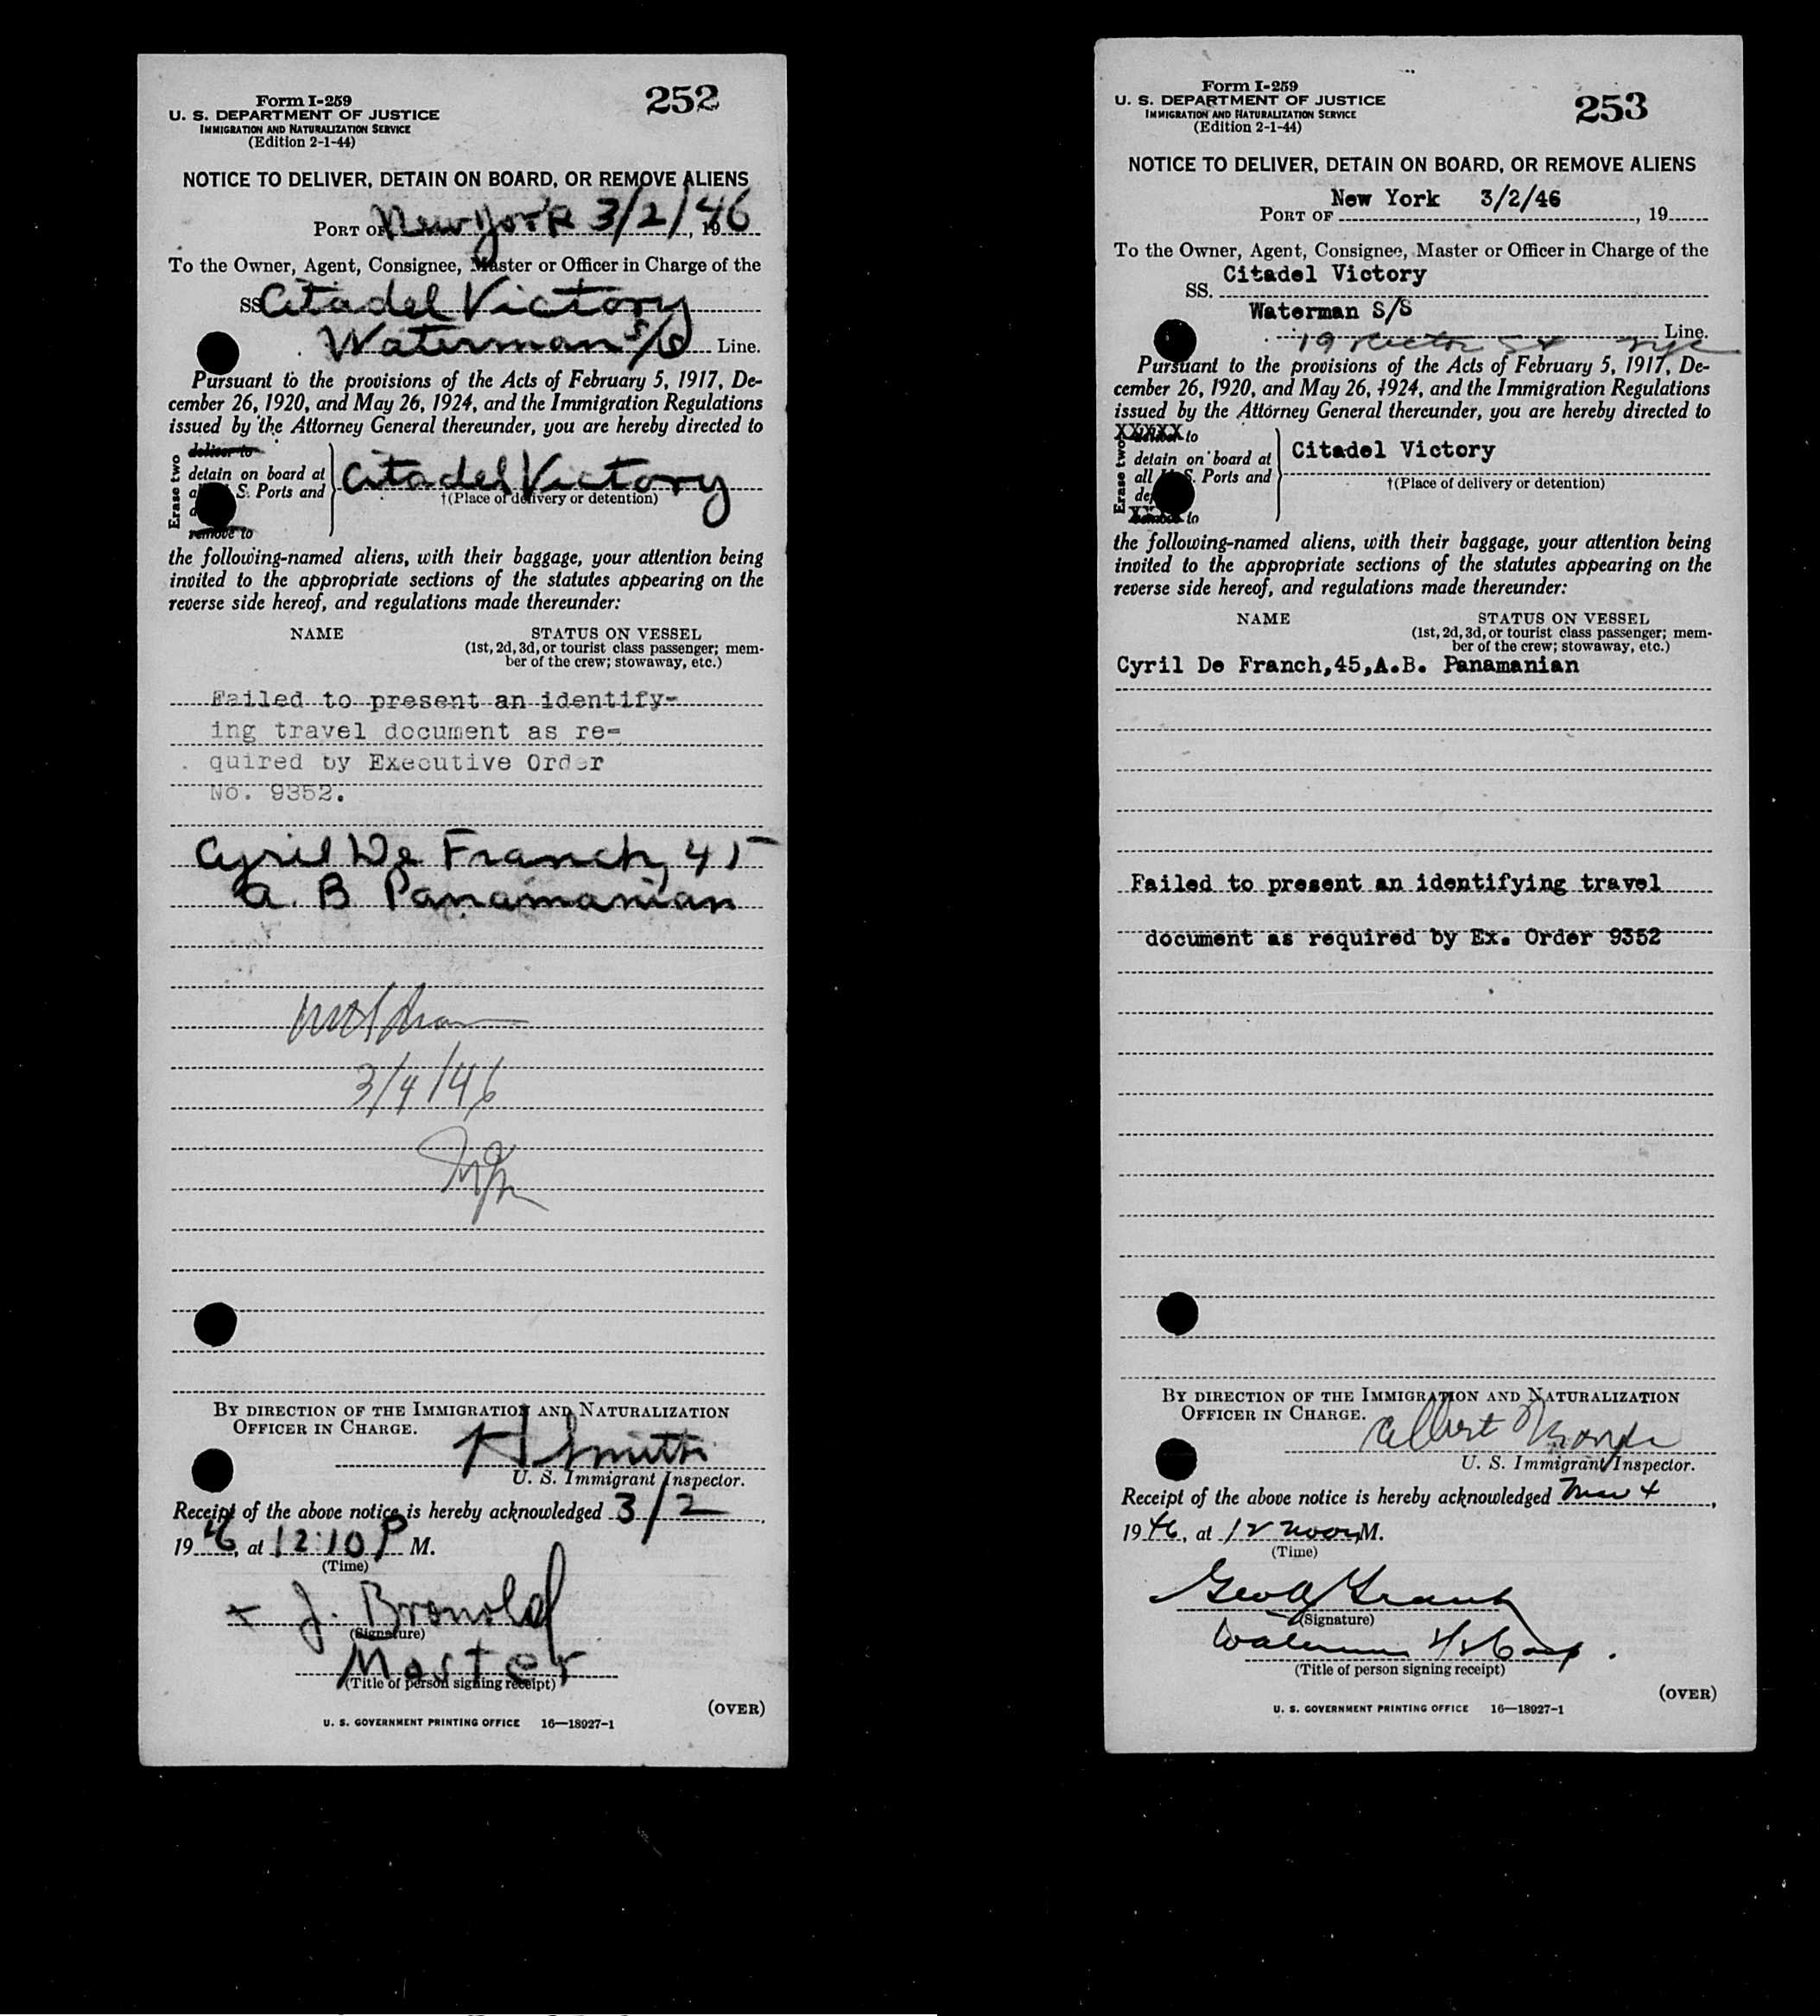 252
Form I-259
U. S. DEPARTMENT OF JUSTICE
IMMIGRATION AND NATURALIZATION SERVICE
(Edition 2-1-44)
NOTICE TO DELIVER, DETAIN ON BOARD, OR REMOVE ALIENS
PORT OF New York 3/2/46, 19
To the Owner, Agent, Consignee, Master or Officer in Charge of the
SS Citadel Victory
Waterman S/S Line.
Pursuant to the provisions of the Acts of February 5, 1917, De-
cember 26, 1920, and May 26, 1924, and the Immigration Regulations
issued by the Attorney General thereunder, you are hereby directed to
Erase two
deliver to
detain on board at
S. Ports and
remove to
Citadel Victory
†(Place of delivery or detention)
the following-named aliens, with their baggage, your attention being
invited to the appropriate sections of the statutes appearing on the
reverse side hereof, and regulations made thereunder:
NAME STATUS ON VESSEL
(1st, 2d, 3d, or tourist class passenger; mem-
ber of the crew; stowaway, etc.)
Failed to present an identify-
ing travel document as re-
quired by Executive Order
No. 9352.
Cyril De Franch, 45
A. B Panamanian
3/4/46
BY DIRECTION OF THE IMMIGRATION AND NATURALIZATION
OFFICER IN CHARGE.
H Smith
U. S. Immigrant Inspector.
Receipt of the above notice is hereby acknowledged 3/2,
1946, at 12:10 P M.
(Time)
x J. Bronold
(Signature)
Master
(Title of person signing receipt)
(OVER)
U. S. GOVERNMENT PRINTING OFFICE 16—18927-1
253
Form I-259
U. S. DEPARTMENT OF JUSTICE
IMMIGRATION AND NATURALIZATION SERVICE
(Edition 2-1-44)
NOTICE TO DELIVER, DETAIN ON BOARD, OR REMOVE ALIENS
PORT OF New York 3/2/46, 19
To the Owner, Agent, Consignee, Master or Officer in Charge of the
SS. Citadel Victory
Waterman S/S
19 Rector St NYC Line.
Pursuant to the provisions of the Acts of February 5, 1917, De-
cember 26, 1920, and May 26, 1924, and the Immigration Regulations
issued by the Attorney General thereunder, you are hereby directed to
Erase two
XXXXX to
detain on board at
all S. Ports and
to
Citadel Victory
†(Place of delivery or detention)
the following-named aliens, with their baggage, your attention being
invited to the appropriate sections of the statutes appearing on the
reverse side hereof, and regulations made thereunder:
NAME STATUS ON VESSEL
(1st, 2d, 3d, or tourist class passenger; mem-
ber of the crew; stowaway, etc.)
Cyril De Franch,45,A.B. Panamanian
Failed to present an identifying travel
document as required by Ex. Order 9352
BY DIRECTION OF THE IMMIGRATION AND NATURALIZATION
OFFICER IN CHARGE.
Albert
U. S. Immigrant Inspector.
Receipt of the above notice is hereby acknowledged Mar 4,
1946, at 12 noon M.
(Time)
Geo A Grant
(Signature)
Waterman S/S Corp.
(Title of person signing receipt)
(OVER)
U. S. GOVERNMENT PRINTING OFFICE 16—18927-1